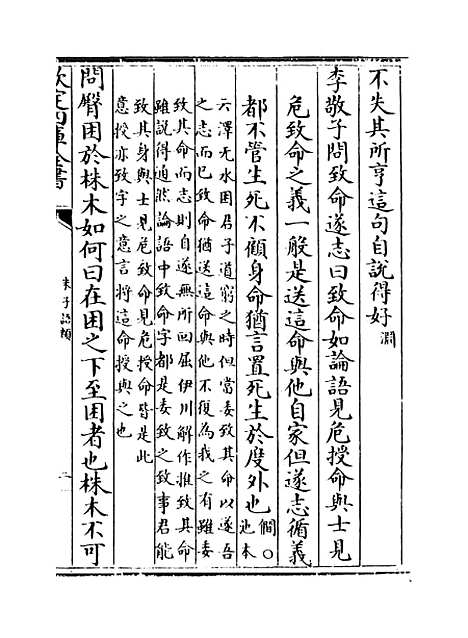 不失其所亨這句自說得好淵
李敬子問致命遂志曰致命如論語見危授命與士見
危致命之義一般是送這命與他自家但遂志循義
都不管生死不顧身命猶言置死生於度外也僩○池本
云澤无水困君子道窮之時但當委致其命以遂吾
之志而已致命猶送這命與他不復為我之有雖委
致其命而志則自遂無所回屈伊川解作推致其命
雖說得通然論語中致命字都是委致之致事君能
致其身與士見危致命見危授命皆是此
意授亦致字之意言將這命授與之也
問臀困於株木如何曰在困之下至困者也株木不可
欽定四庫全書
朱子語類